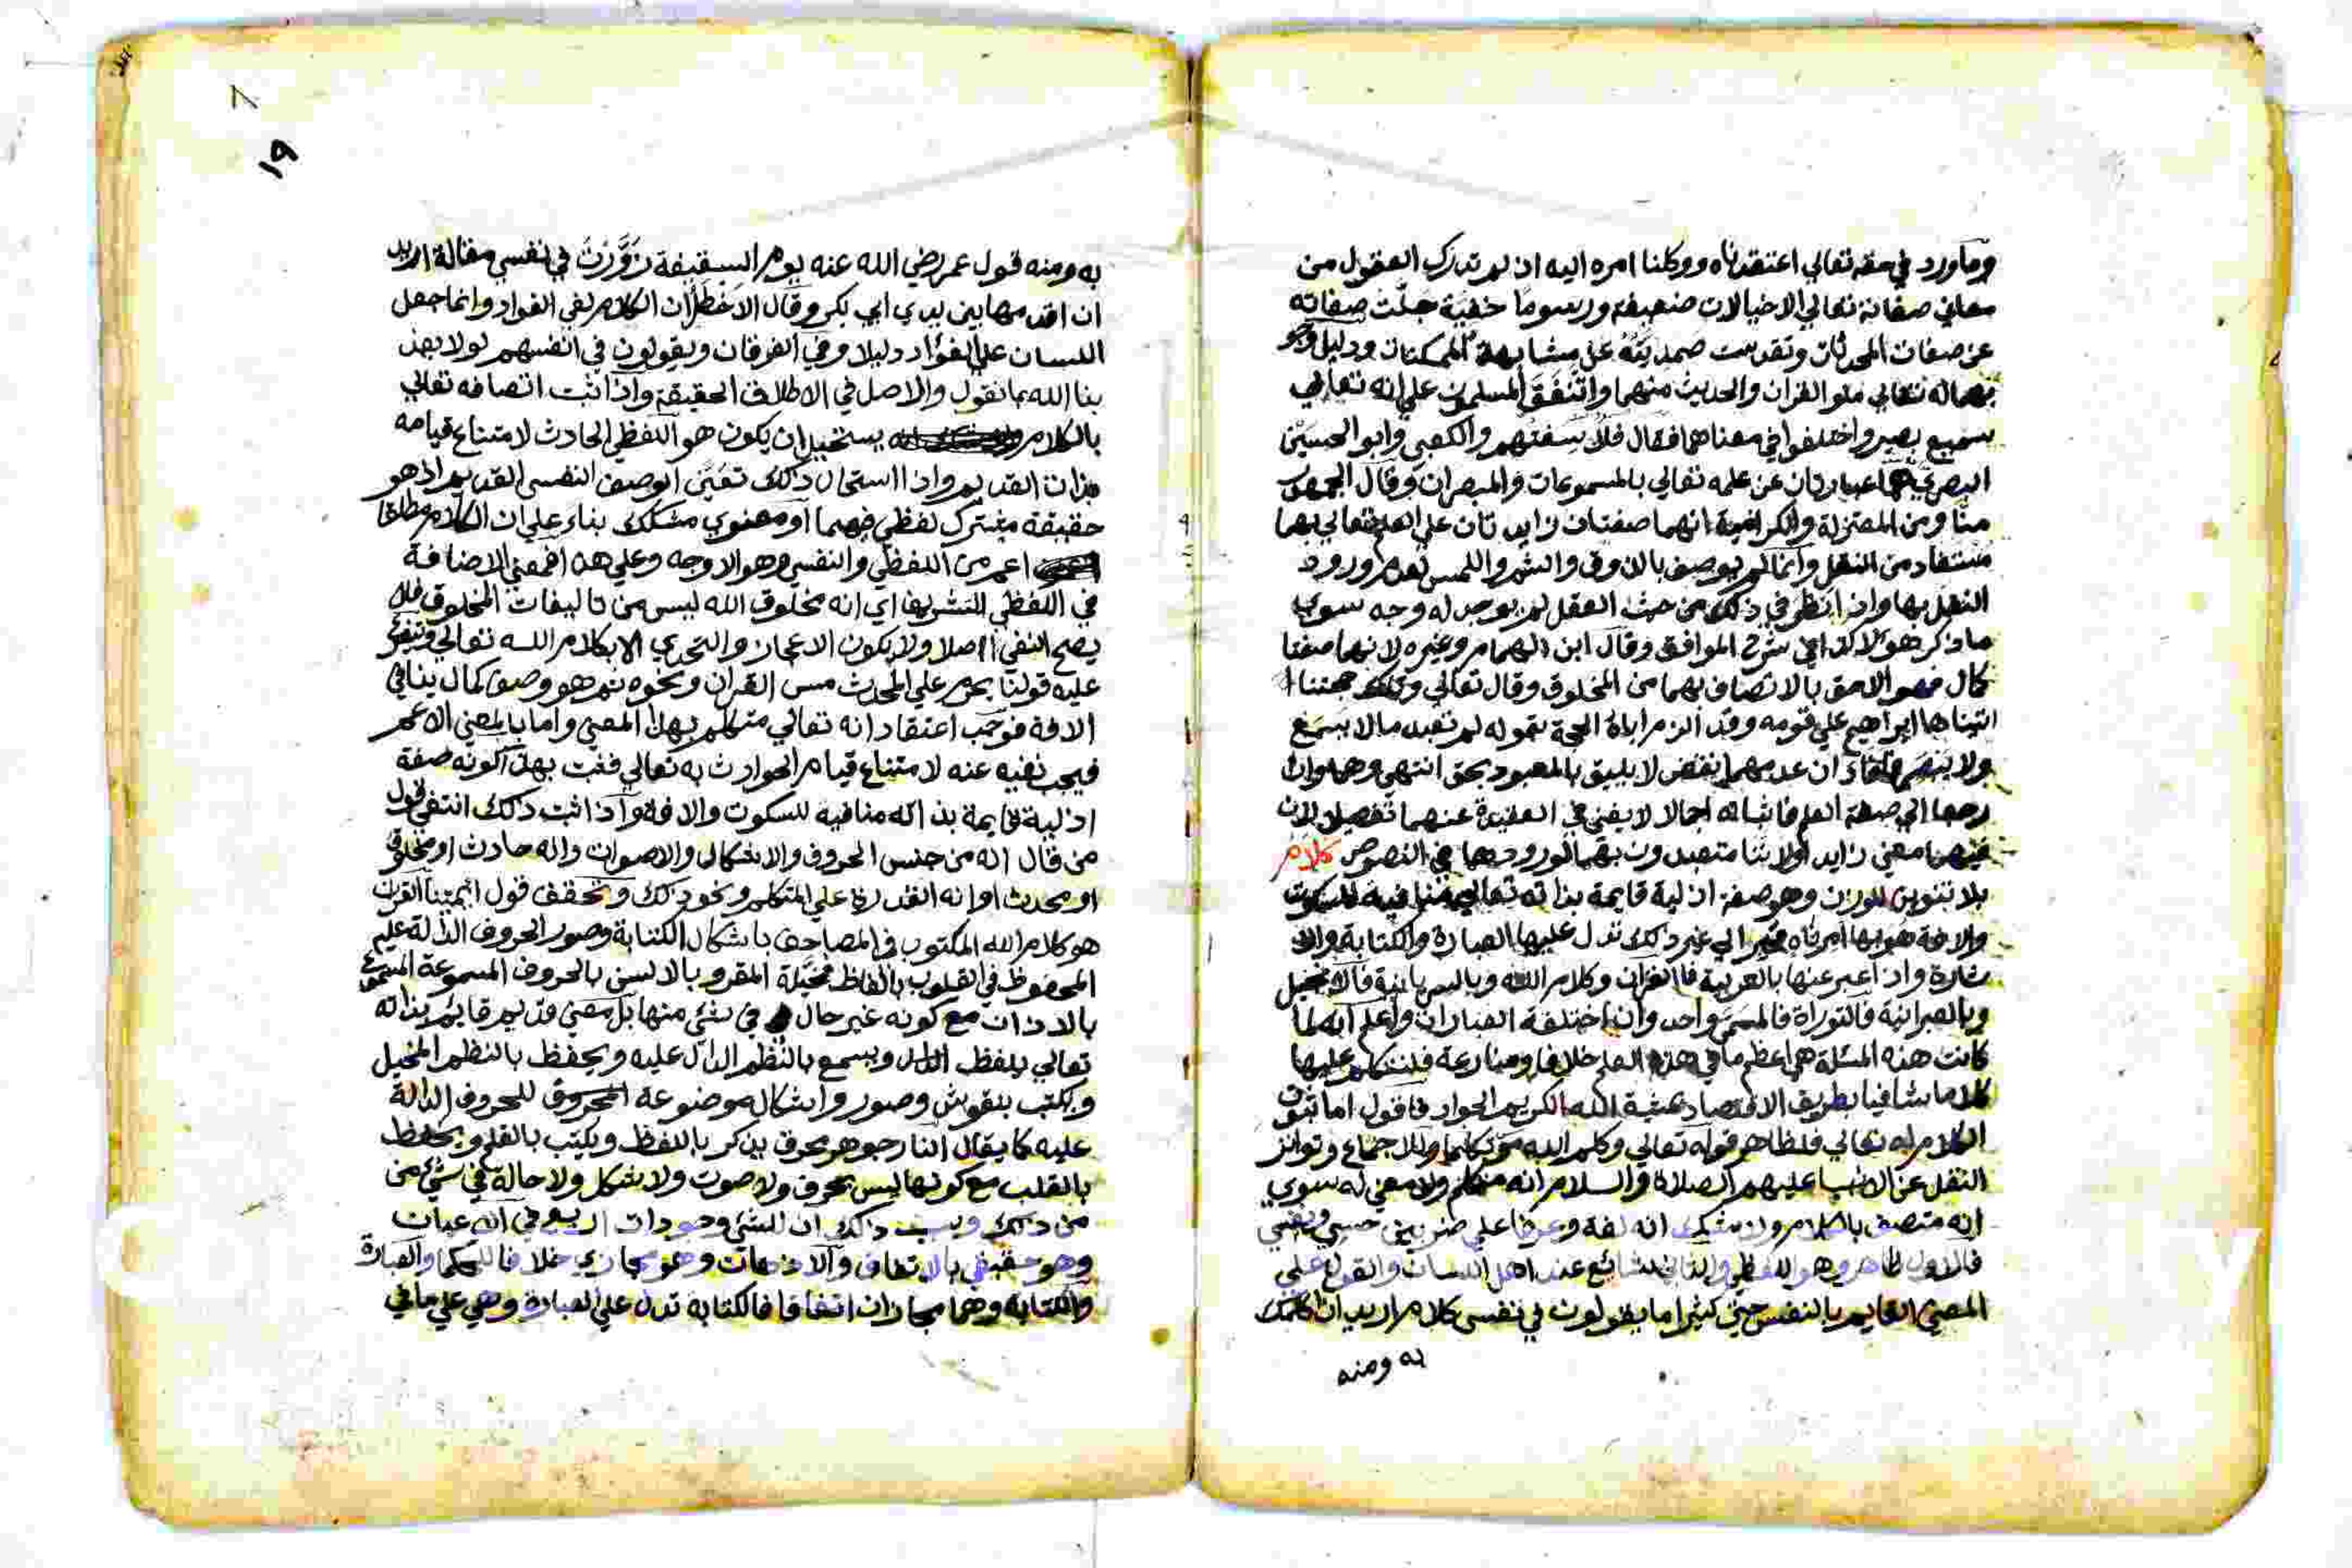 وما ورد في حقه تعالي اعتقدناه ووكلنا امره اليه اذ لم تدرك العقول من
معاني صفاته تعالي الا خيالات ضعيفة ورسوما خفية جلت صفاته
عن صفات المحدثات وتقدست صمديته عن مشابهة الممكنات ودليل
تعالي ملو القران والحديث منهما واتفق المسلمون علي انه تعالي
سميع بصير واختلفوا في معناهما فقال فلاسفتهم والكعبي وابو الحسين
البصري هما عبارتان عن علمه تعالي بالمسموعات والمبصرات وقال الجمهور
منا ومن المعتزلة والكرامية انهما صفتان زايدتان علي العلم
مستفاد من النقل وانما لم يوصف بالذوق والشم واللمس لعدم ورود
النقل بها واذا نظر في ذلك من حيث العقل لم يوجد له وجه سوي
ما ذكر هولا كذا في شرح المواقف وقال ابن الهمام وغيره لانهما صفتا
كمال فهو الاحق بالاتصاف بهما من المخلوق وقال تعالي وتلك حجتنا
اتيناها ابراهيم علي قومه وقد الزم اباه الحجة بقوله لم تعبد ما لا يسمع
ولا يبصر فافاد ان عدمهما نقص لا يليق بالمعبود بحق انتهي وهما وان
رجعا الي صفة العلم فاثباته اجمالا لا يغني في العقيدة عنهما تفصيلا لان
فيهما معني زايد اولاننا متعبدون بهما لورودهما في النصوص كلام
بلا تنوين للوزن وهو صفة ازلية قايمة بذاته تعالي منافية للسكوت
والافة هو بها امر ناه مخبر الي غير ذلك تدل عليها العبارة والكتابة والا
شارة واذا عبر عنها بالعربية فالقران وكلام الله وبالسريانية فالانجيل
وبالعبرانية فالتوراة فالمسمي واحد وان اختلفة العبارات واعلم انه لما
كانت هذه المسئلة هي اعظم ما في هذا العلم خلافا ومنازعة فلنتكلم عليها
كلاما شافيا بطريق الاقتصاد بمشية الله الكريم الجواد فاقول اما ثبوت
الكلام له تعالي فلظاهر قوله تعالي وكلم الله موسي تكليما وللاجماع وتواتر
النقل عن الانبيا عليهم الصلاة والسلام انه متكلم ولا معني له سوي
انه متصف بالكلام ولا شك انه لغة وعرفا علي ضربين حسي ونفسي
فالاول ظاهر وهو اللفظي والثاني شائع عند اهل اللسان والقول علي
المعني القايم بالنفس حتي كثيرا ما يقولون في نفسي كلام اريد ان اكلمك
به ومنه
١٩
به ومنه قول عمر رضي الله عنه يوم السقيفة زورت في نفسي مقالة اريد
ان اقدمها بين يدي ابي بكر وقال الاخطل ان الكلام لفي الفواد وانما جعل
اللسان علي الفؤاد دليلا وفي الفرقان ويقولون في انفسهم لولا يعذ
بنا الله بما نقول والاصل في الاطلاق الحقيقة واذا ثبت اتصافه تعالي
بالكلام يستحيل ان يكون هو اللفظي الحادث لامتناع قيامه
بذات القديم واذا استحال ذلك تعين الوصف النفسي القديم اذ هو
حقيقة مشترك لفظي فيهما او معنوي مشكك بناء علي ان الكلام مطلقا
اعم من اللفظي والنفسي وهو الاوجه وعلي هذا فمعني الاضافة
في اللفظي التشريف اي انه مخلوق الله ليس من تاليفات المخلوق فلا
يصح النفي اصلا ولا يكون الاعجاز والتحدي الا بكلام الله تعالي ويتفرع
عليه قولنا يحرم علي المحدث مس القران ونحوه ثم هو وصف كمال ينافي
الافة فوجب اعتقاد انه تعالي متكلم بهذا المعني واما بالمعني الاعم
فيجب نفيه عنه لامتناع قيام الحوادث به تعالي فثبت بهذا كونه صفة
ازلية قايمة بذاته منافيه للسكوت والافة واذا ثبت ذلك انتفي قول
من قال انه من جنس الحروف والاشكال والاصوات وانه حادث او مخلوق
او محدث او انه القدرة علي المتكلم ونحو ذلك وتحقق قول ائمتنا القران
هو كلام الله المكتوب في المصاحف باشكال الكتابة وصور الحروف الدالة عليه
المحفوظ في القلوب بالفاظ مخيلة المقرو بالالسن بالحروف المسموعة المسموع
بالاذان مع كونه غير حال في شئ منها بل معني قديم قايم بذاته
تعالي يلفظ ويسمع بالنظم الدال عليه ويحفظ بالنظم المخيل
ويكتب بنقوش وصور واشكال موضوعة للحروف الدالة
عليه كما يقال النار جوهر محرق يذكر باللفظ ويكتب بالقلم ويحفظ
بالقلب مع كونها ليس بحرف ولا صوت ولا شكل ولا حالة في شئ من
من ذلك ان للشئ وجودات اربع في الاعيان
وهو حقيقي بالاتفاق والاذهان وهو مجازي خلافا للحكما والعبارة
والكتابة وهما مجازان اتفاقا فالكتابة تدل علي العبارة وهي علي ما في